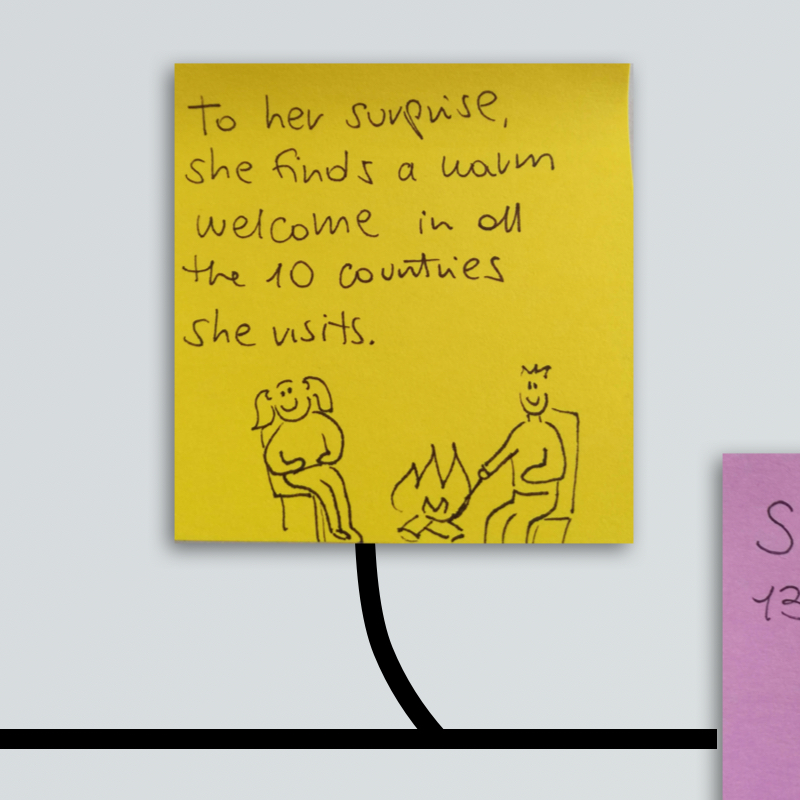 To her surprise,
she finds a warm
welcome in all
the 10 countries
she visits.
S
13